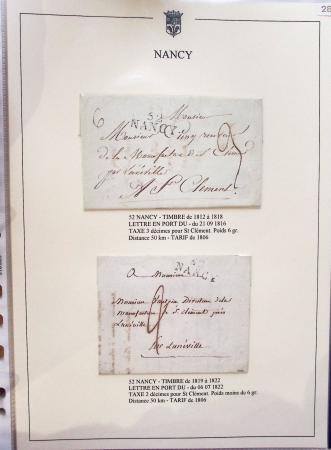 28
NANCY
6
52
NANCY
Monsieur
Monsieur
de la Manufacture de St Clément
par Lunéville
A St Clément
52 NANCY - TIMBRE de 1812 à 1818
LETTRE EN PORT DU - du 21 09 1816
TAXE 3 décimes pour St Clément. Poids 6 gr.
Distance 50 km - TARIF de 1806
NANCY
A Monsieur
Monsieur Directeur de la
manufacture de St Clément près
Lunéville
par Lunéville
52 NANCY - TIMBRE de 1819 à 1822
LETTRE EN PORT DU - du 06 07 1822
TAXE 2 décimes pour St Clément. Poids moins de 6 gr.
Distance 50 km - TARIF de 1806